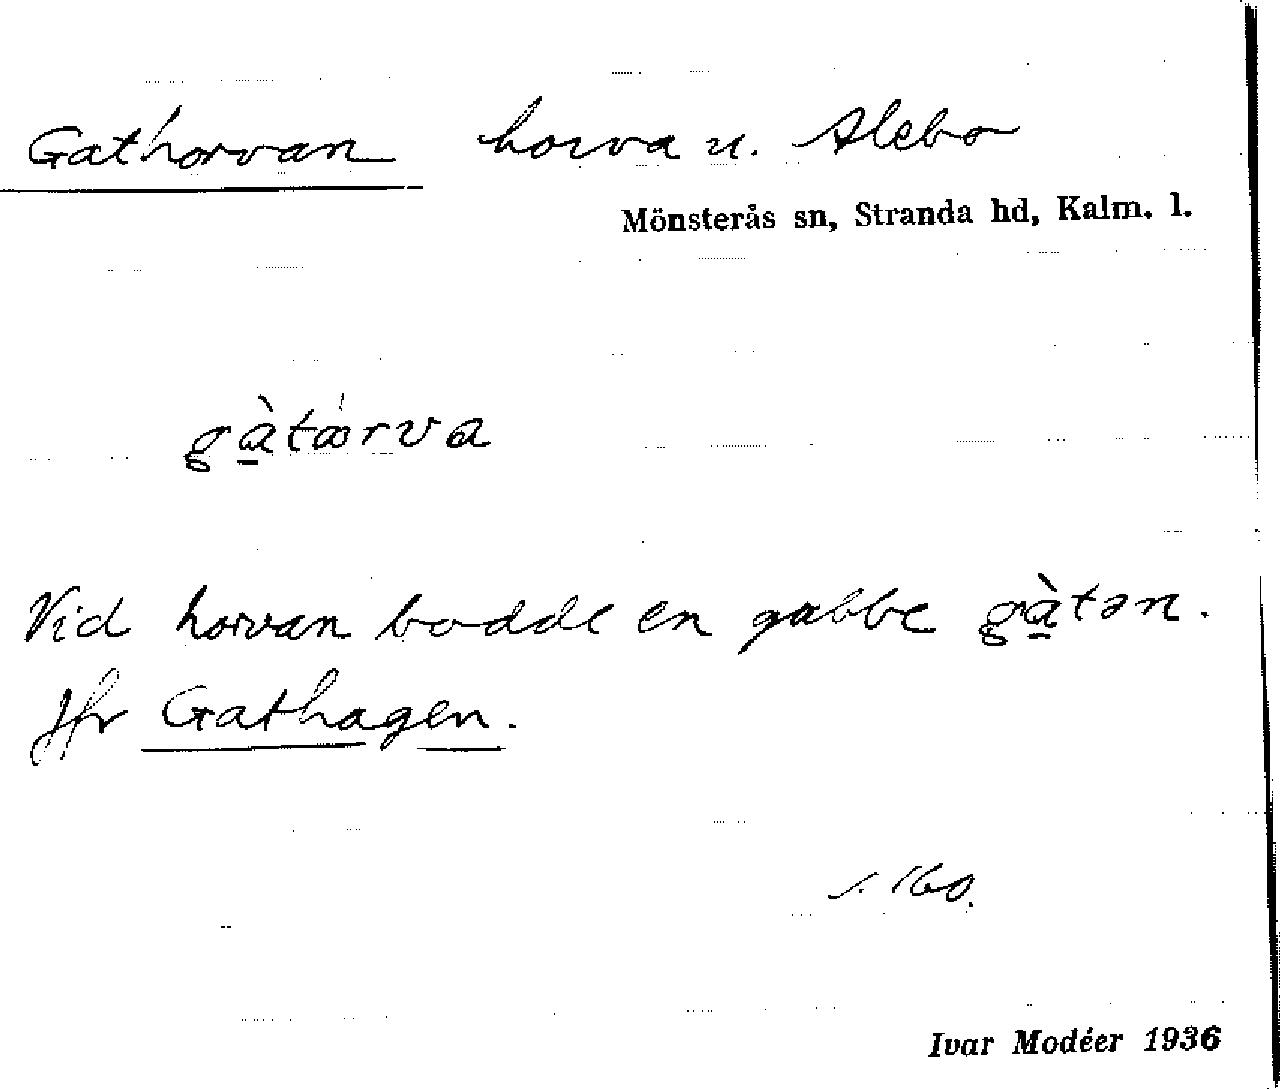 Gathorvan horva u. Alebo
Mönsterås sn, Stranda hd, Kalm. l.
gà̱tǿrva
Vid horvan bodde en gubbe gà̱tən.
Jfr Gathagen.
s. 160.
Ivar Modéer 1936